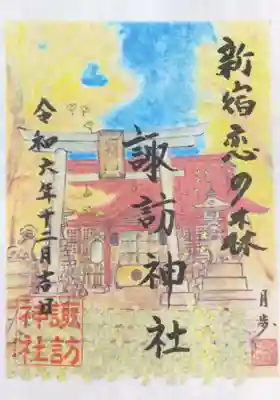 新宿恋の森
諏訪神社
令和六年十二月吉日
諏訪
神社
月歩